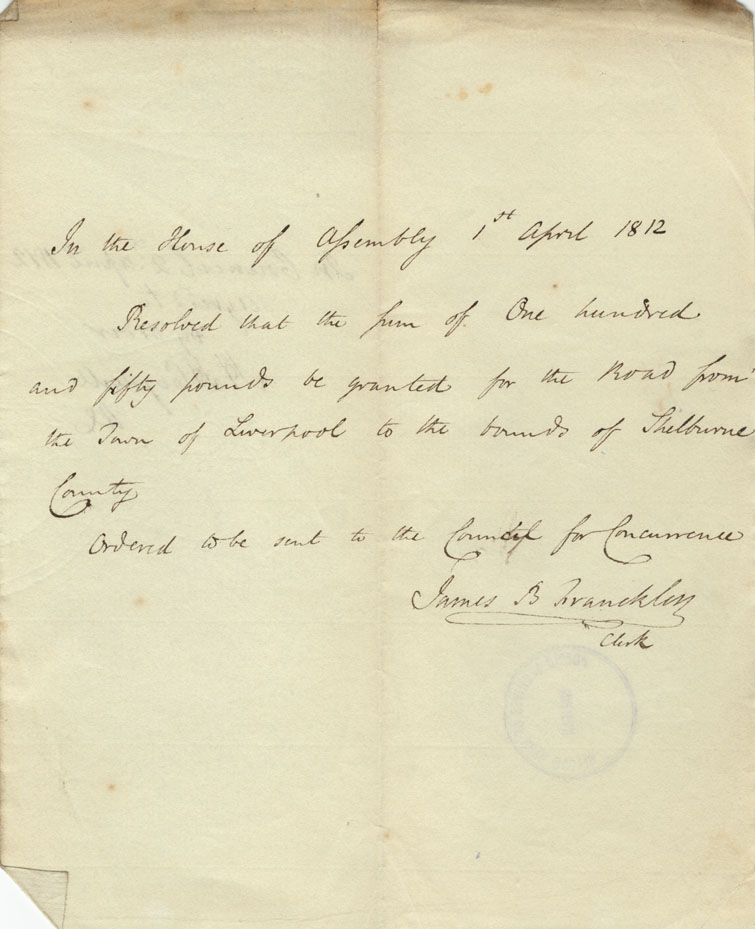 In the House of Assembly 1st April 1812
Resolved that the sum of One hundred
and fifty pounds be granted for the Road from
the Town of Liverpool to the bounds of Shelburne
County
Ordered to be sent to the Council for Concurrence
James B Franckley
Clerk